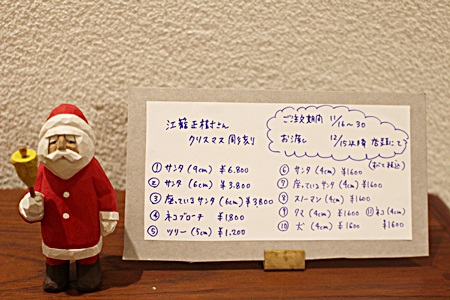 江藤 正樹さん
クリスマス 周り
ご注文期間 11/16〜30
お渡し 12/15以降 店頭にて
(すべて税込)
① サンタ (9cm) ¥6.800
② サンタ (6cm) ¥3.800
③ 座っているサンタ (6cm) ¥3800
④ ネコブローチ ¥1800
⑤ ツリー (5cm) ¥1.200
⑥ サンタ (4cm) ¥1600
⑦ 座っているサンタ (4cm) ¥1600
⑧ スノーマン (4cm) ¥1600
⑨ クマ (4cm) ¥1600 ⑪ ネコ (4cm) ¥1600
⑩ 犬 (4cm) ¥1600